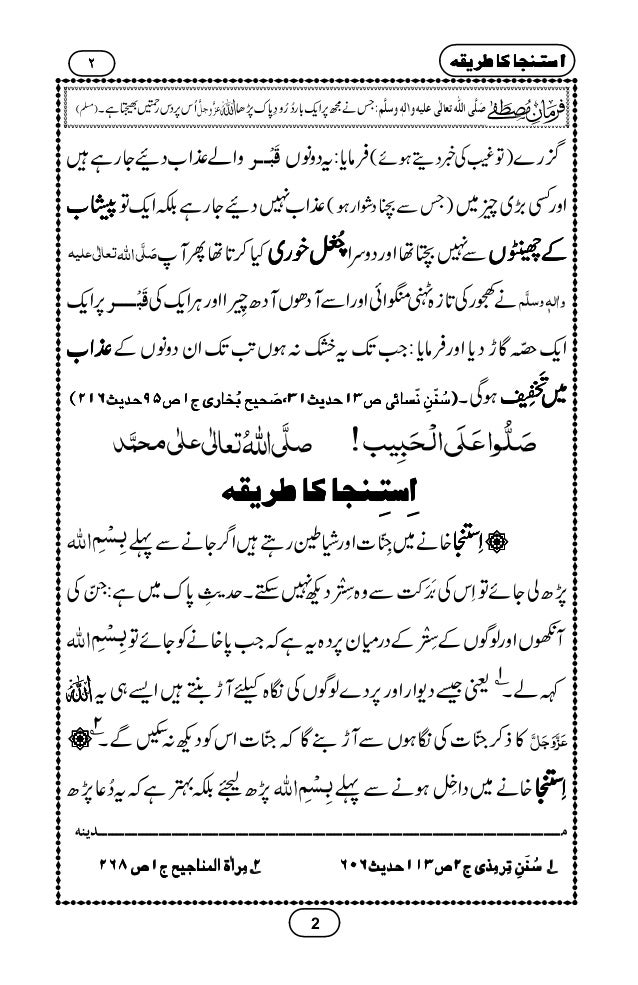 استنجا کا طریقہ
۲
فرمانِ مصطفٰے صلَّی اللہ تعالٰی علیہ والہٖ وسلَّم: جس نے مجھ پر ایک بار دُرُودِ پاک پڑھا اللہ عزَّوجلَّ اُس پر دس رحمتیں بھیجتا ہے۔ (مسلم)
گزرے (تو غیب کی خبر دیتے ہوئے) فرمایا: یہ دونوں قَبْر والے عذاب دئیے جا رہے ہیں
اور کسی بڑی چیز میں (جس سے بچنا دشوار ہو) عذاب نہیں دئیے جا رہے بلکہ ایک تو پیشاب
کے چھینٹوں سے نہیں بچتا تھا اور دوسرا چُغل خوری کیا کرتا تھا پھر آپ صَلَّی اللہ تعالٰی علیہ
والہٖ وسلَّم نے کھجور کی تازہ ٹہنی منگوائی اور اسے آدھوں آدھ چِیرا اور ہر ایک کی قَبْر پر ایک
ایک حصّہ گاڑ دیا اور فرمایا: جب تک یہ خشک نہ ہوں تب تک ان دونوں کے عذاب
میں تَخْفِیف ہوگی۔ (سُنَنِ نَسائی ص۱۳ حدیث۳۱، صَحیح بُخاری ج۱ ص۹۵ حدیث۲۱۶)
صَلُّوا عَلَی الْحَبِیب! صلَّی اللہُ تعالٰی علٰی محمَّد
اِستِنجا کا طریقہ
اِستنجا خانے میں جِنّات اور شیاطین رہتے ہیں اگر جانے سے پہلے بِسْمِ اللہ
پڑھ لی جائے تو اِس کی بَرَکت سے وہ سِتْر دیکھ نہیں سکتے۔ حدیثِ پاک میں ہے: جنّ کی
آنکھوں اور لوگوں کے سِتْر کے درمیان پردہ یہ ہے کہ جب پاخانے کو جائے تو بِسْمِ اللہ
کہہ لے۔۱ یعنی جیسے دیوار اور پردے لوگوں کی نگاہ کیلئے آڑ بنتے ہیں ایسے ہی یہ اللہ
عَزَّوَجَلَّ کا ذکر جنّات کی نگاہوں سے آڑ بنے گا کہ جنّات اس کو دیکھ نہ سکیں گے۔۲
اِستنجا خانے میں داخِل ہونے سے پہلے بِسْمِ اللہ پڑھ لیجئے بلکہ بہتر ہے کہ یہ دُعا پڑھ
مــدینہ
۱ سُنَنِ تِرمِذی ج۲ ص۱۱۳ حدیث۶۰۶ ۲ مِراٰۃ المناجیح ج۱ ص ۲۶۸
2